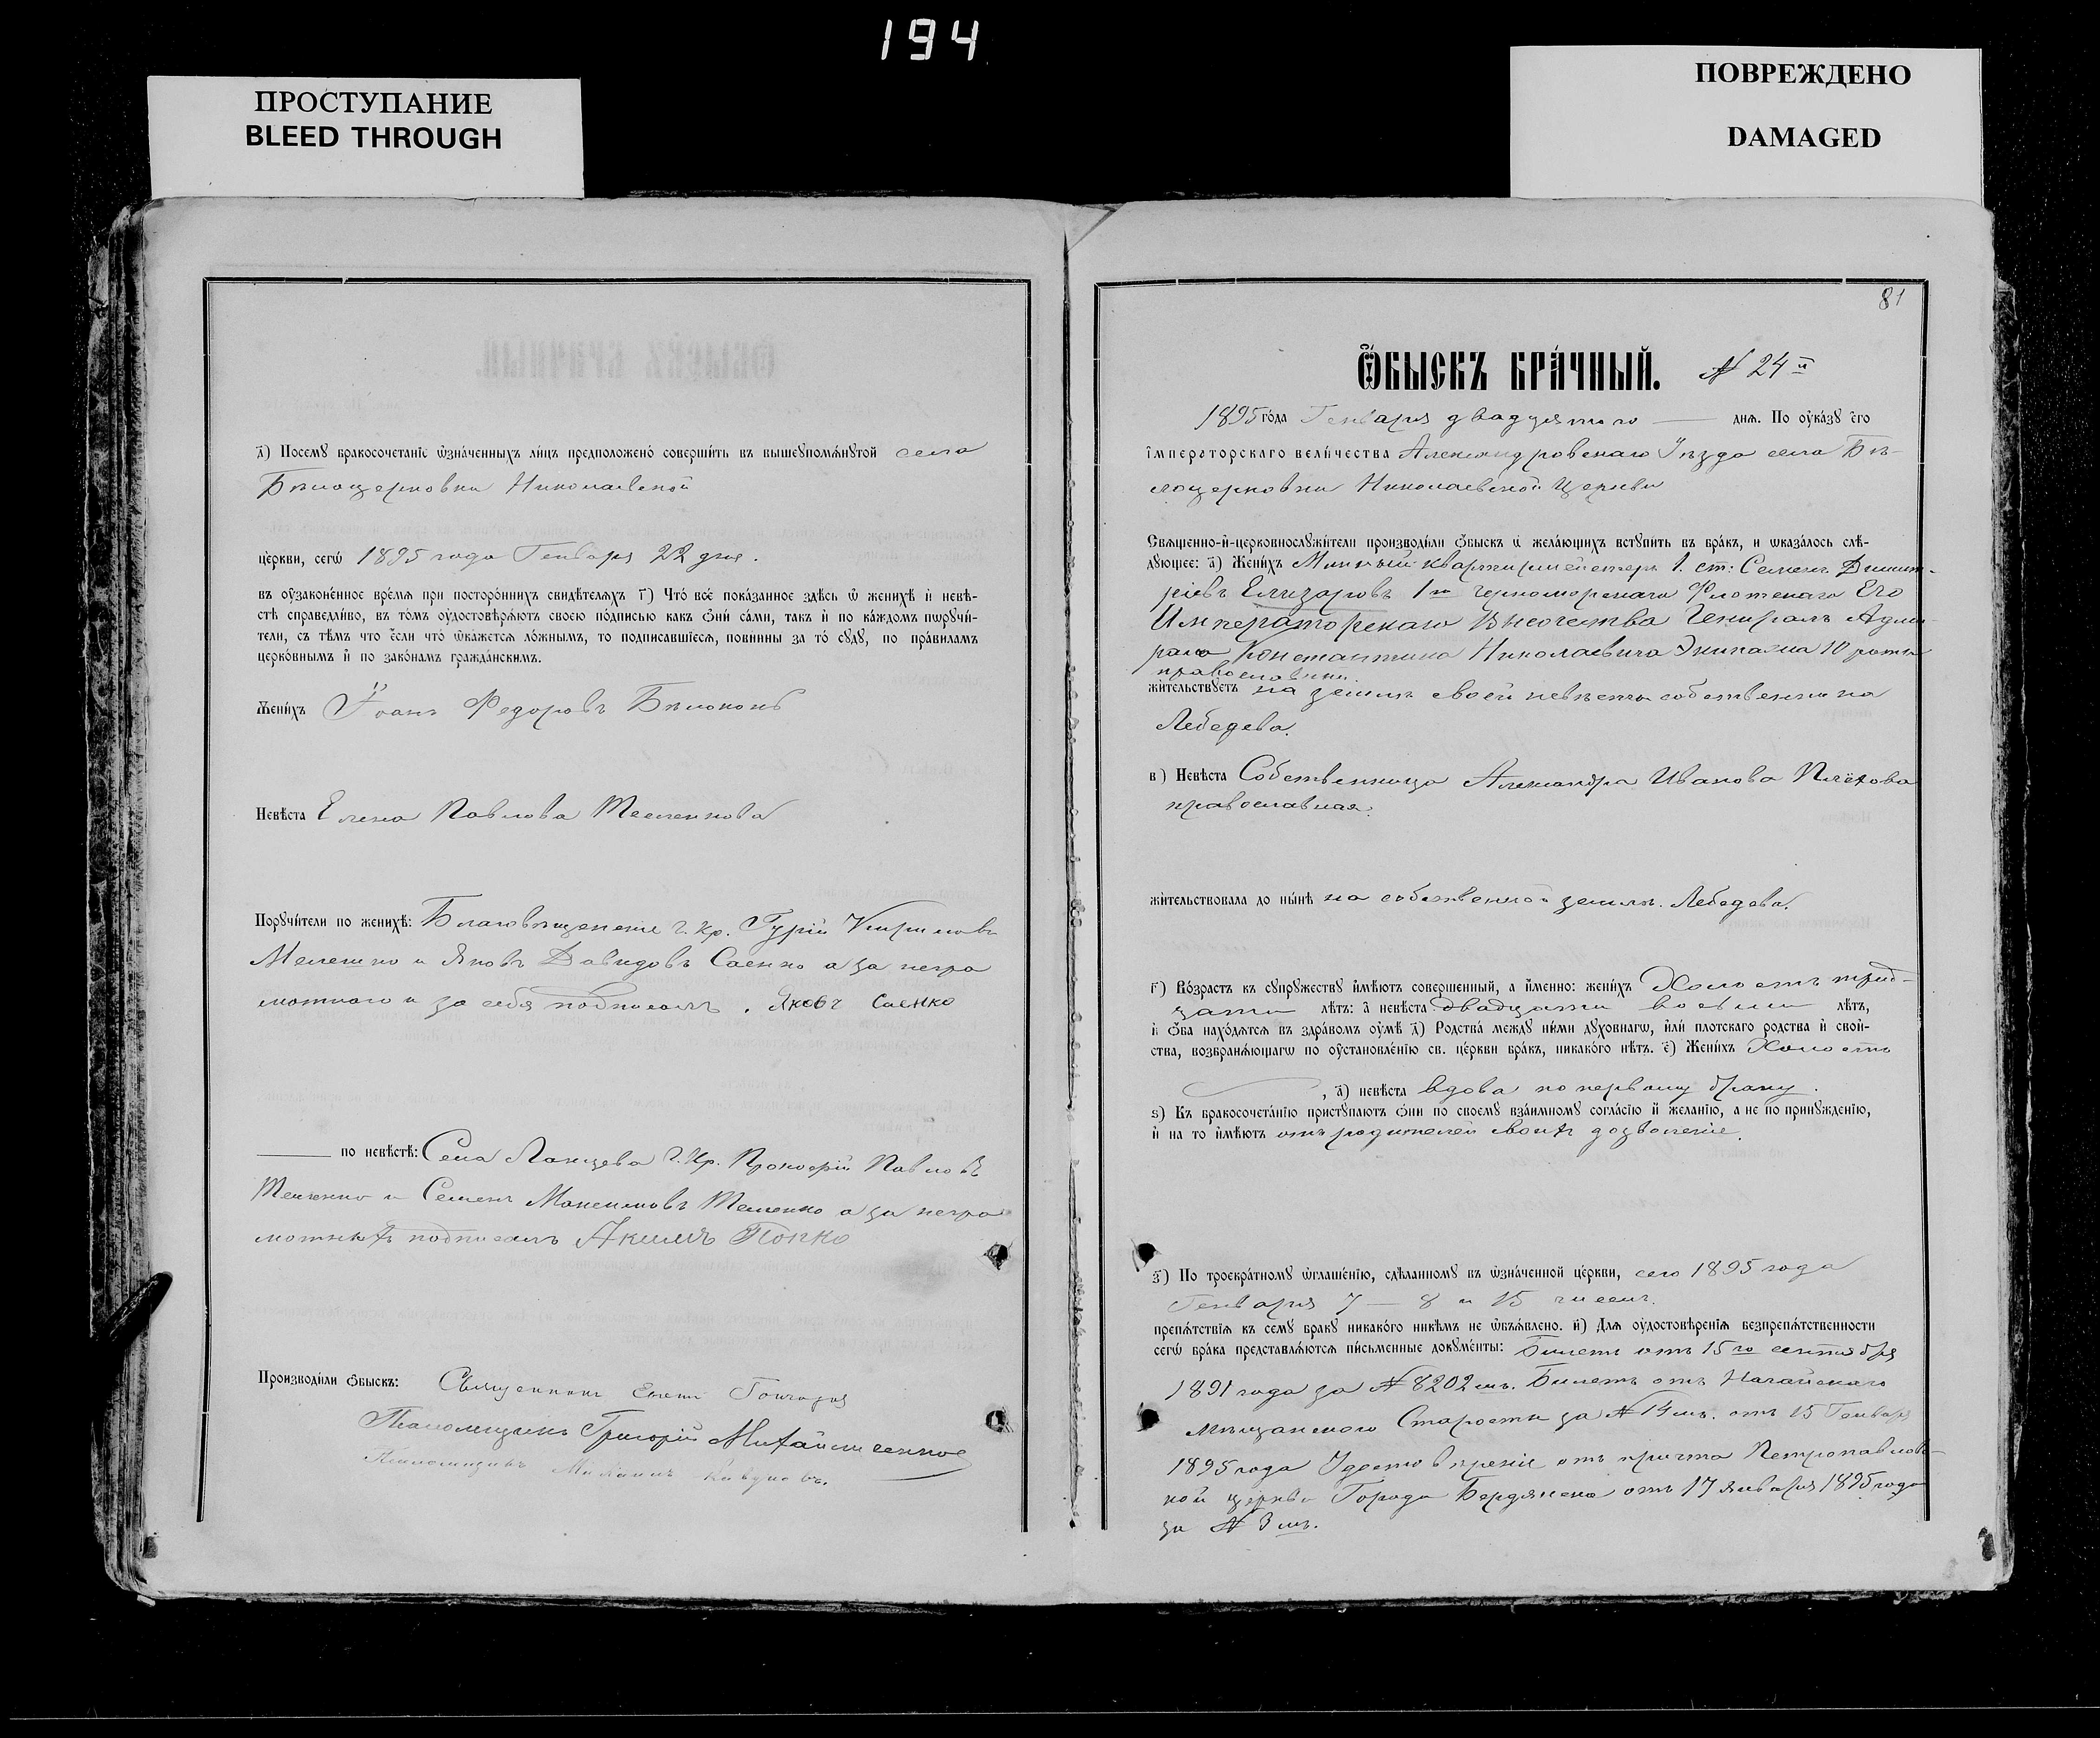 194
ПРОСТУПАНИЕ
BLEED THROUGH
ПОВРЕЖДЕНО
DAMAGED
д҃) Посемꙋ бракосочетанїе ѡ҆значенныхъ лицъ предположено совершить въ вышеꙋпомянꙋтой села
Бѣлоцерковки Николаевской
церкви, сегѡ 1895 года Генваря 22 дня.
въ оу҆законенное время при постороннихъ свидѣтеляхъ г҃) Что все показанное здѣсь ѡ женихѣ и невѣ-
стѣ справедливо, въ томъ оу҆достовѣряютъ своею подписью какъ ѻ҆ни сами, такъ и по каждомъ пѡрꙋчи-
тели, съ тѣмъ что если что ѡ҆кажется ложнымъ, то подписавшїеся, повинны за то сꙋдꙋ, по правиламъ
церковнымъ и по законамъ гражданскимъ.
Женихъ Іоанъ Федоровъ Бѣлоконь
Невѣста Елена Павлова
Порꙋчители по женихѣ: Благовѣщенские г. кр. Гурій Кириловъ
и Яковъ Давидовъ Саенко а за негра
мотного и за себя подписалъ. Яковъ Саенко
по невѣстѣ: Села г. кр. Прокофій Павловъ
и Семенъ Максимовъ а за негра
мотныхъ подписалъ Акимъ Попко
Производили ѻ҆быскъ: Священникъ Гончаров
Псаломщикъ Григорій Михайличенко
Псаломщикъ
81
Ѻ҆БЫСКЪ БРАЧНЫЙ. № 24й
1895 года Генваря двадцятого дня. По оу҆казꙋ его
императорскаго величества Александровскаго Уѣзда села Бѣ-
лоцерковки Николаевской Церкви
Священно-и-церковнослꙋжители производили ѻ҆быскъ ѡ желающихъ встꙋпить въ бракъ, и ѡказалось слѣ-
дꙋющее: а҃) Женихъ квартирмейстеръ 1. ст: Семенъ Димит-
ріевъ Елизаровъ 1го Черноморскаго Флотскаго Его
Императорскаго Высочества Генералъ Адми-
рала Константина Николаевича Экипажа 10 роты
православный.
жительствꙋетъ на земли своей невѣсты собственника
Лебедева.
в҃) Невѣста Собственница Александра Иванова Плёхова
православная.
жительствовала до нынѣ на собственной земли Лебедева.
г҃) Возрастъ къ сꙋпрꙋжествꙋ имѣютъ совершенный, а именно: женихъ Холостъ трид-
цати лѣтъ: а невѣста двадцати восьми лѣтъ,
и ѻ҆ба находятся въ здравомъ оу҆мѣ д҃) Родства междꙋ ними дꙋховнагѡ, или плотскаго родства и свой-
ства, возбраняющагѡ по оу҆становленїю св. церкви бракъ, никакого нѣтъ. е҃) Женихъ Холостъ
, а) невѣста вдова по первому браку.
ѕ҃) Къ бракосочетанїю пристꙋпаютъ ѻ҆ни по своемꙋ взаимномꙋ согласїю и желанїю, а не по принꙋжденїю,
и на то имѣютъ отъ родителей своихъ дозволение.
з҃) По троекратномꙋ ѡ҆глашенїю, сдѣланномꙋ въ ѡ҆значенной церкви, сего 1895 года
Генваря 7 — 8 и 15 чиселъ.
препятствїя къ семꙋ бракꙋ никакого никѣмъ не ѡ҆бъявлено. и҃) Для оу҆достовѣренїя безпрепятственности
сегѡ брака представляются письменные докꙋменты: Билетъ отъ 15го сентября
1891 года за № 8202мъ. Билетъ отъ Ногайскаго
Мѣщанского Старосты за № 14мъ. отъ 15 Генваря
1895 года Удостовѣреніе отъ причта Петропавловс-
кой церкви Города Бердянска отъ 17 января 1895 года
за № 3мъ.